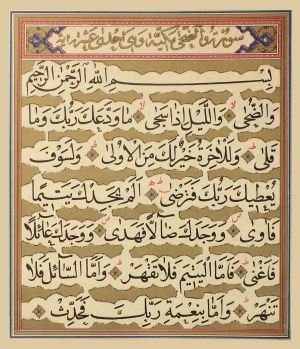 سورة والضحى مكية وهي احدى عشر اية
بسم الله الرحمن الرحيم
والضحى والليل اذا سجى ما ودعك ربك وما
قلى وللاخرة خير لك من الاولى ولسوف
يعطيك ربك فترضى الم يجدك يتيما
فاوى ووجدك ضالا فهدى ووجدك عائلا
فاغنى فاما اليتيم فلا تقهر واما السائل فلا
تنهر واما بنعمة ربك فحدث